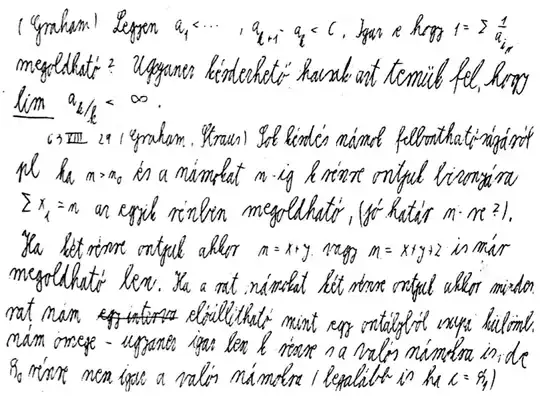 (Graham) Legyen a₁ < ⋯ , a_{k+1} - a_k < C. Igaz e hogy 1 = Σ 1/a_{i_n}
megoldható? Ugyanez kérdezhető ha csak azt teszük fel, hogy
lim a_k/k < ∞.
63 VIII 29 (Graham, Straus) Sok kérdés számok felbonthatóságáról
pl ha n > n₀ és a számokat n-ig k részre osztjuk bizonyára
Σ x_i = n az egyik részben megoldható, (jó határ n-re?).
Ha két részre osztjuk akkor n = x+y vagy n = x+y+z is már
megoldható lesz. Ha a rat számokat két részre osztjuk akkor minden
rat szám előállítható mint egy osztályból
szám összege - ugyanez igaz lesz k részre s a valós számokra is, de
ℵ₀ részre nem igaz a valós számokra (legalább is ha c = ℵ₁)